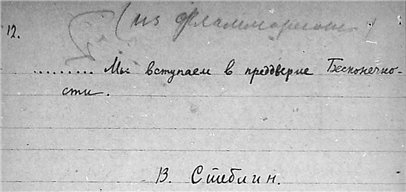 12.
(из Фламмариона)
.......... Мы вступаем в преддверие Бесконечно-
сти.
В. Стеблин.